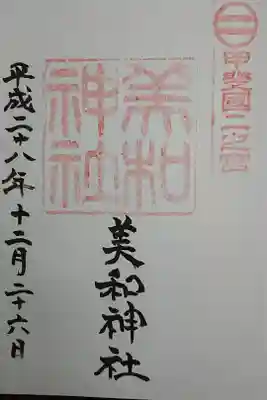 甲斐國二之宮
美和
神社
美和神社
平成二十八年十二月二十六日